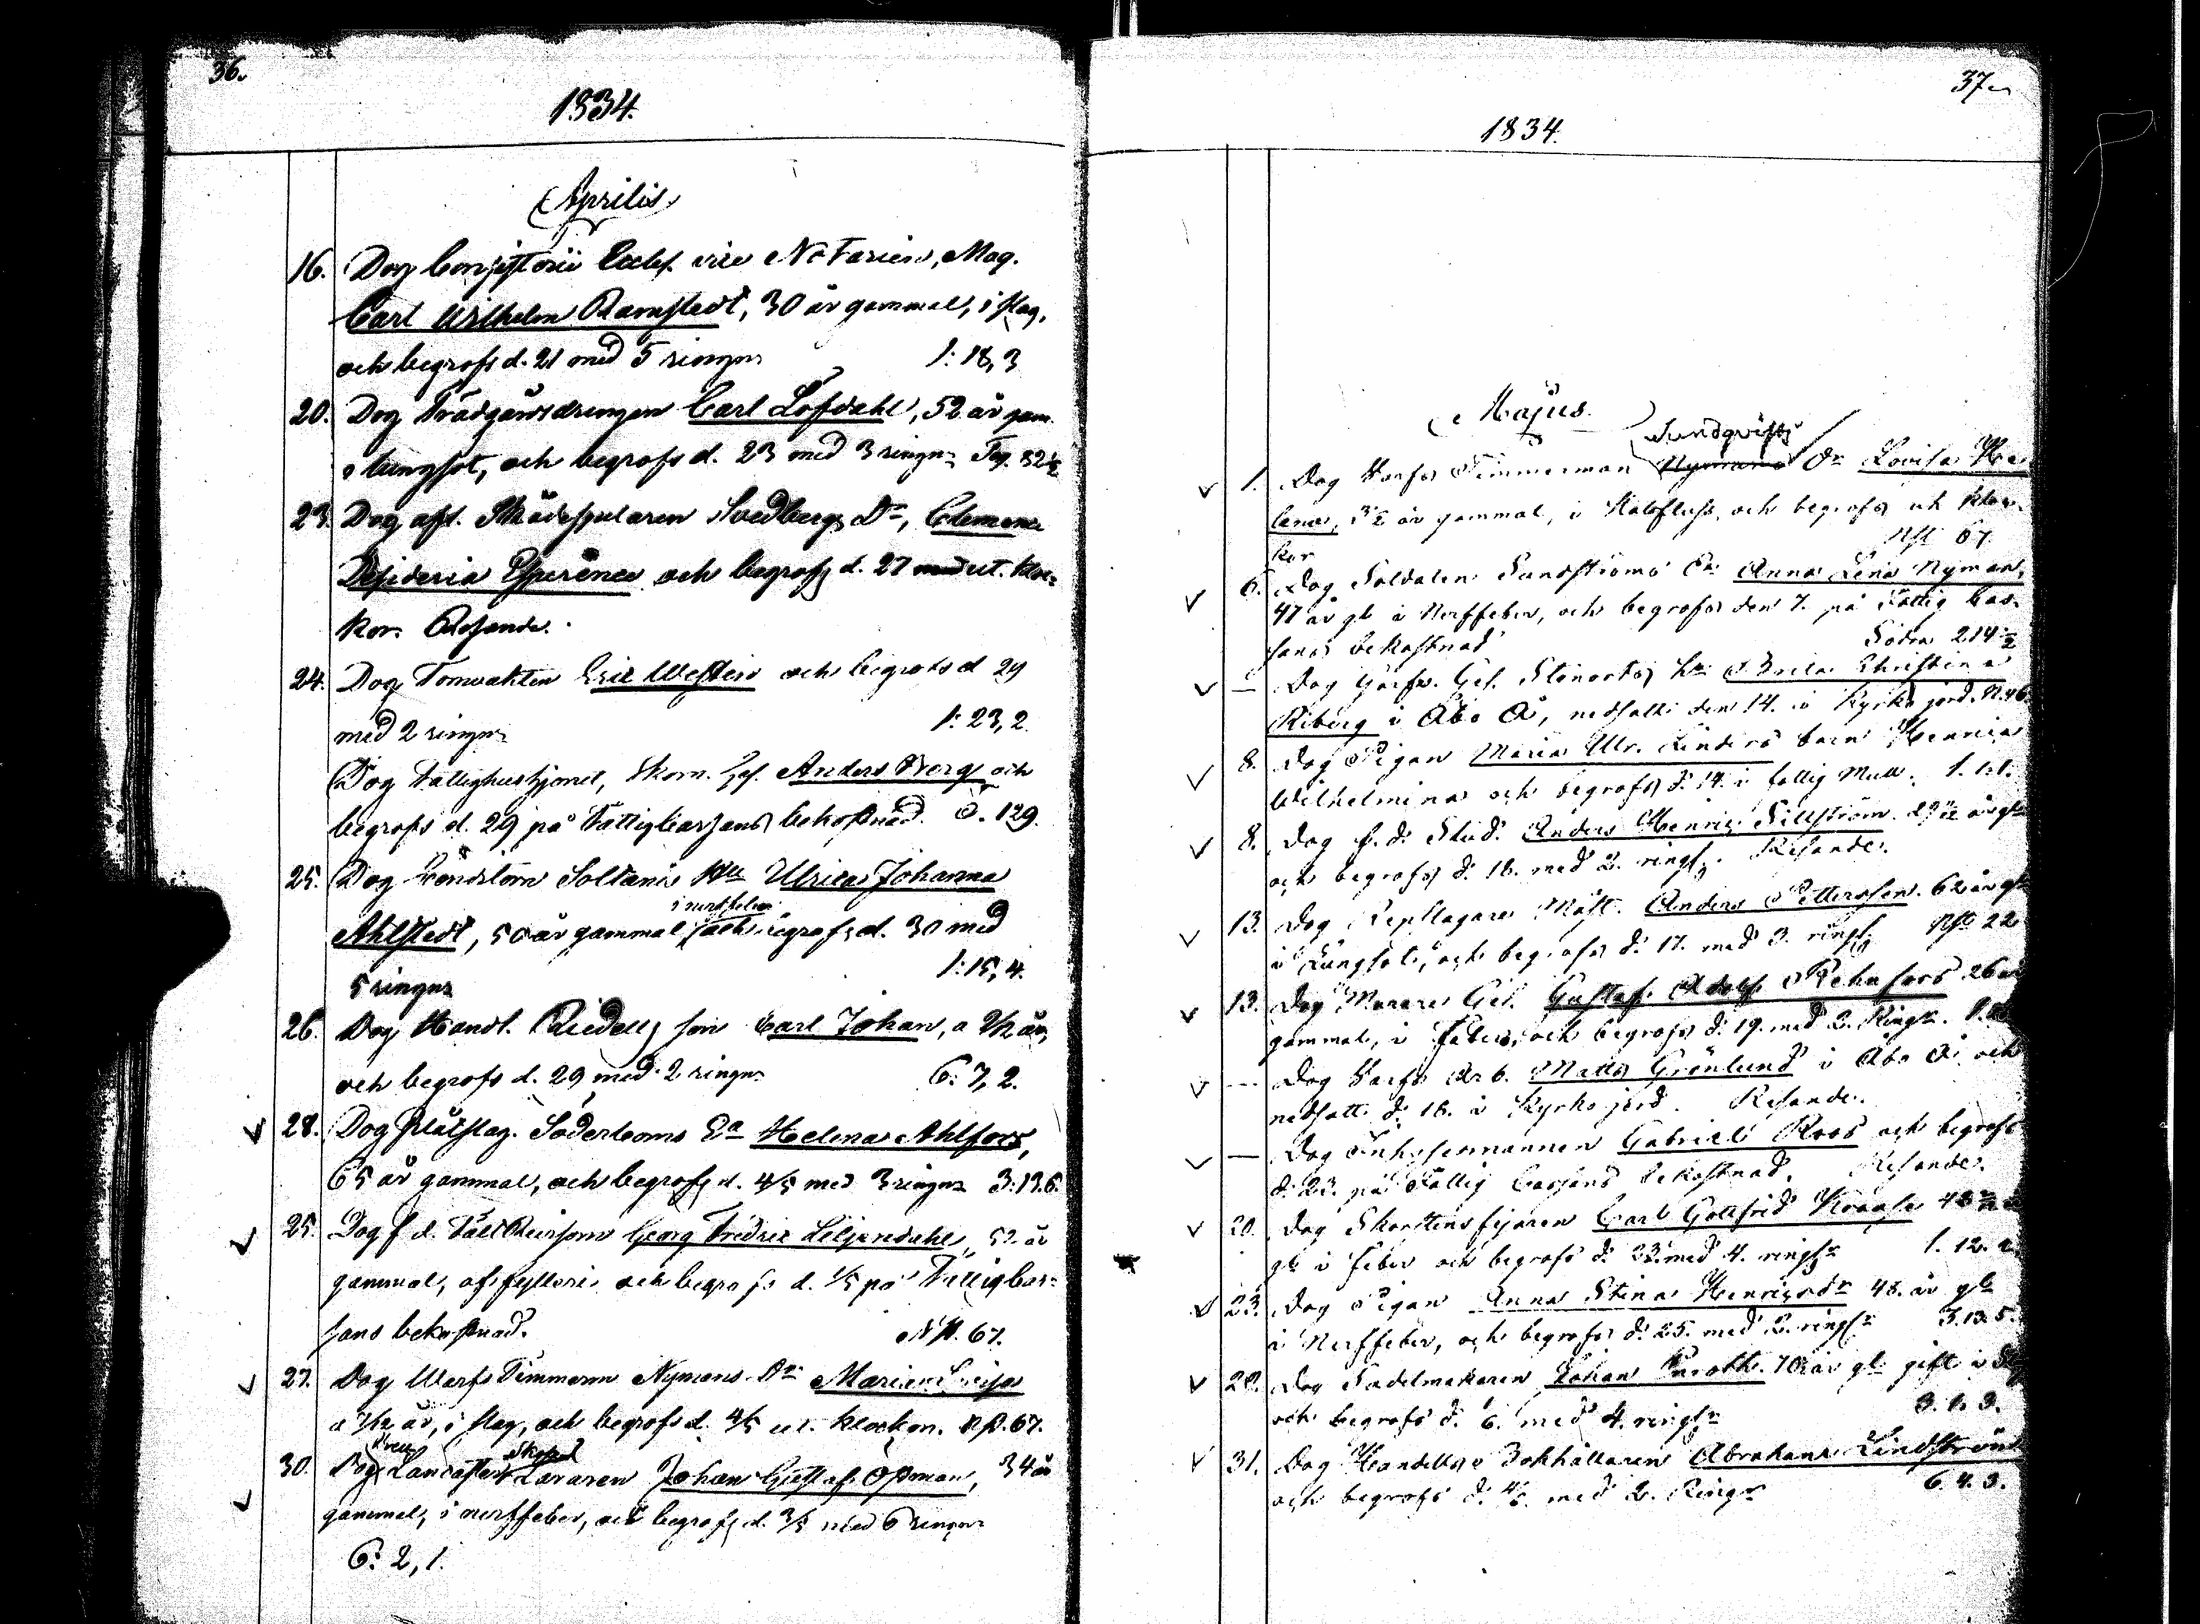 36.
1834.
Aprilis
16. Dog Consistorii Eccles. vice Notarien, Mag.
Carl Wilhelm Ramstedt, 30 år gammal, i slag,
och begrofs d. 21 med 5 ringnr 1: 18, 3
20. Dog Trädgårdsdrengen Carl Löfdahl, 52 år gam.
i lungsot, och begrofs d. 23 med 3 ringnr
23. Dog afl. Skådespelaren Svedbergs Dr, Clemence
Desideria Esperence och begrofs d. 27 ut. kloc-
kor. Resande.
24. Dog Tornvakten Eric Westen och begrofs d 29
med 2 ringnr 1: 23, 2
Dog Fattighushjonet, Skom. Ges. Anders Berg och
begrofs d. 29 på Fattigcassans bekostnad. S. 129.
25. Dog Conditorn Soltanis Hu Ulrica Johanna
i nerffeber
Ahlstedt, 50 år gammal, och begrofs d. 30 med
5 ringnr 1: 15, 4.
26. Dog Handl. Riedells son Carl Johan, a 1/2 år,
och begrofs d. 29 med 2 ringnr 6: 7, 2.
28. Dog Plåtslag. Söderboms Ea Helena Ahlfors,
65 år gammal, och begrofs d. 4/5 med 3 ringnr 3: 13. 6.
25. Dog f. d. Georg Fredric Liljendahl, 52 år
gammal, af fylleri och begrofs d. 1/5 på Fattigcas-
sans bekostnad. N st. 67.
27. Dog Warfs Timmerm Nymans Dr Maria
a 7/12 år, i slag, och begrofs d. 4/5 ut. klockor. N st. 67.
30. Dog Lancaster Skol Läraren Johan Gustaf Östman, 34 år
gammal, i nerffeber, och begrofs d. 3/5 med 6 ringnr
6: 2, 1.
37
1834.
Majus.
Sundqvists
1. Dog Varfs Timmerman Nymans Dr Lovisa He-
lena, 3 1/2 år gammal, i Halsfluss, och begrofs ut kloc-
kor Nst 67.
6. Dog Soldaten Sundströms Ea Anna Lena Nyman,
47 år gl i Nerffeber, och begrofs den 7. på Fattig Cas-
sans bekostnad Södra 214 1/2
— Dog Garfv. Ges. Stenorts Hu Brita Christina
Riberg i Åbo Å, nedsatt den 14. i Kyrko jord. N. 46
8. Dog Pigan Maria Ulr. Linders barn Henrica
Wilhelmina och begrofs d: 14. i fattig Mull. 1. 1. 1.
8. Dog f. d. Stud. Anders Henric Sillström
och begrofs d: 16. med 2. ringr. Resande.
13. Dog Repslagare Mäst. Anders Pettersson. 62 år gl
i Lungsot, och begrofs d: 17. med 3. ringr. Nst 22
13. Dog Murare Ges. Gustaf Adolf Rehnfors 26 år
gammal, i Feber, och begrofs d: 19. med 2. Ringr.
— Dog Varfs Arb. Matts Grönlund i Åbo Å och
nedsatt d: 16. i Kyrko jord. Resande.
— Dog Inhysesmannen Gabriel Roos och begrofs
d: 23. på Fattig Cassans bekostnad. Resande.
20. Dog Skorstensfejaren Carl Gottfrid
gl i feber och begrofs d: 23. med 4. ringr 1. 12. 2.
23. Dog Pigan Anna Stina Henricsdr 48. år gl
i Nerffeber, och begrofs d: 25. med 2. ringr 3. 13. 5.
28. Dog Sadelmakaren Johan 70 år gl gift i
och begrofs d: 6. med 4. ringr 3. 1. 3.
31. Dog Handels Bokhållaren Abraham Lindström
och begrofs d: 4/6. med 2. Ringr 6. 4. 3.